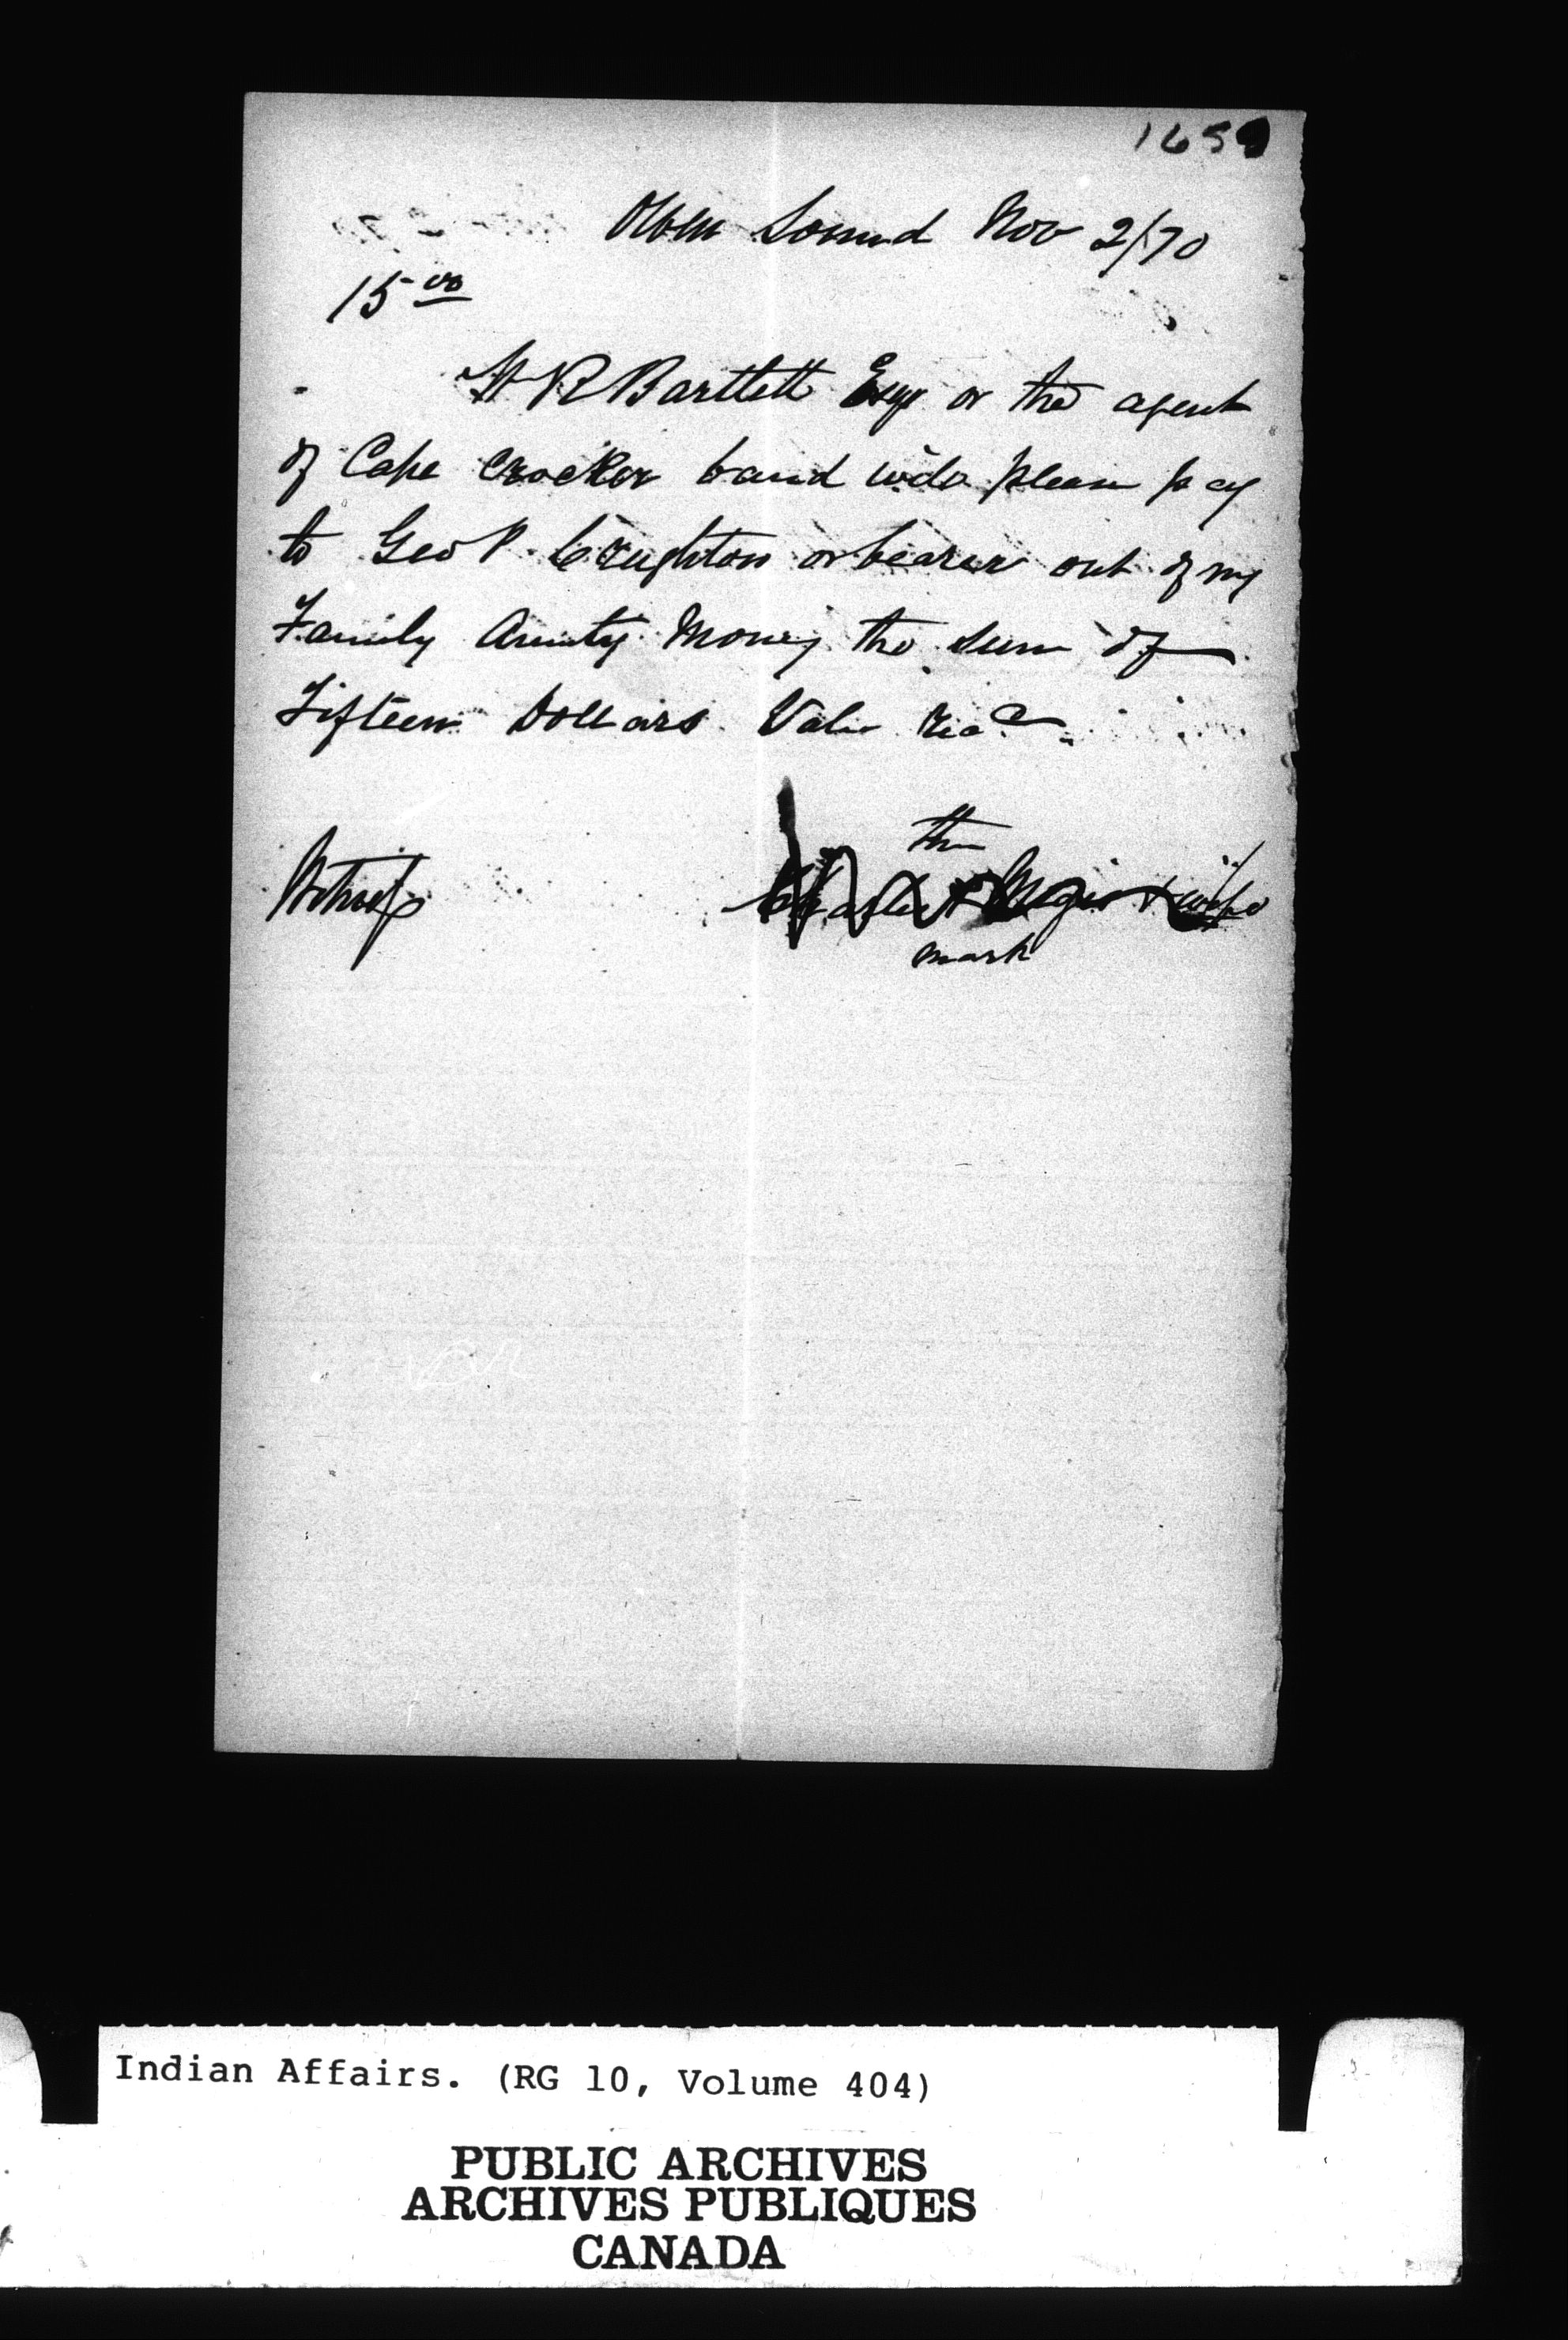 165
Owen Sound Nov 2/70
15 00
W R Bartlett Esqr or the agent
of Cape Crocker band will please pay
to Geo P. Creighton or bearer out of my
Family Anuity Money the sum of
Fifteen Dollars Value recd
Witness
their
Charles X + wife
mark
Indian Affairs. (RG 10, Volume 404)
PUBLIC ARCHIVES
ARCHIVES PUBLIQUES
CANADA